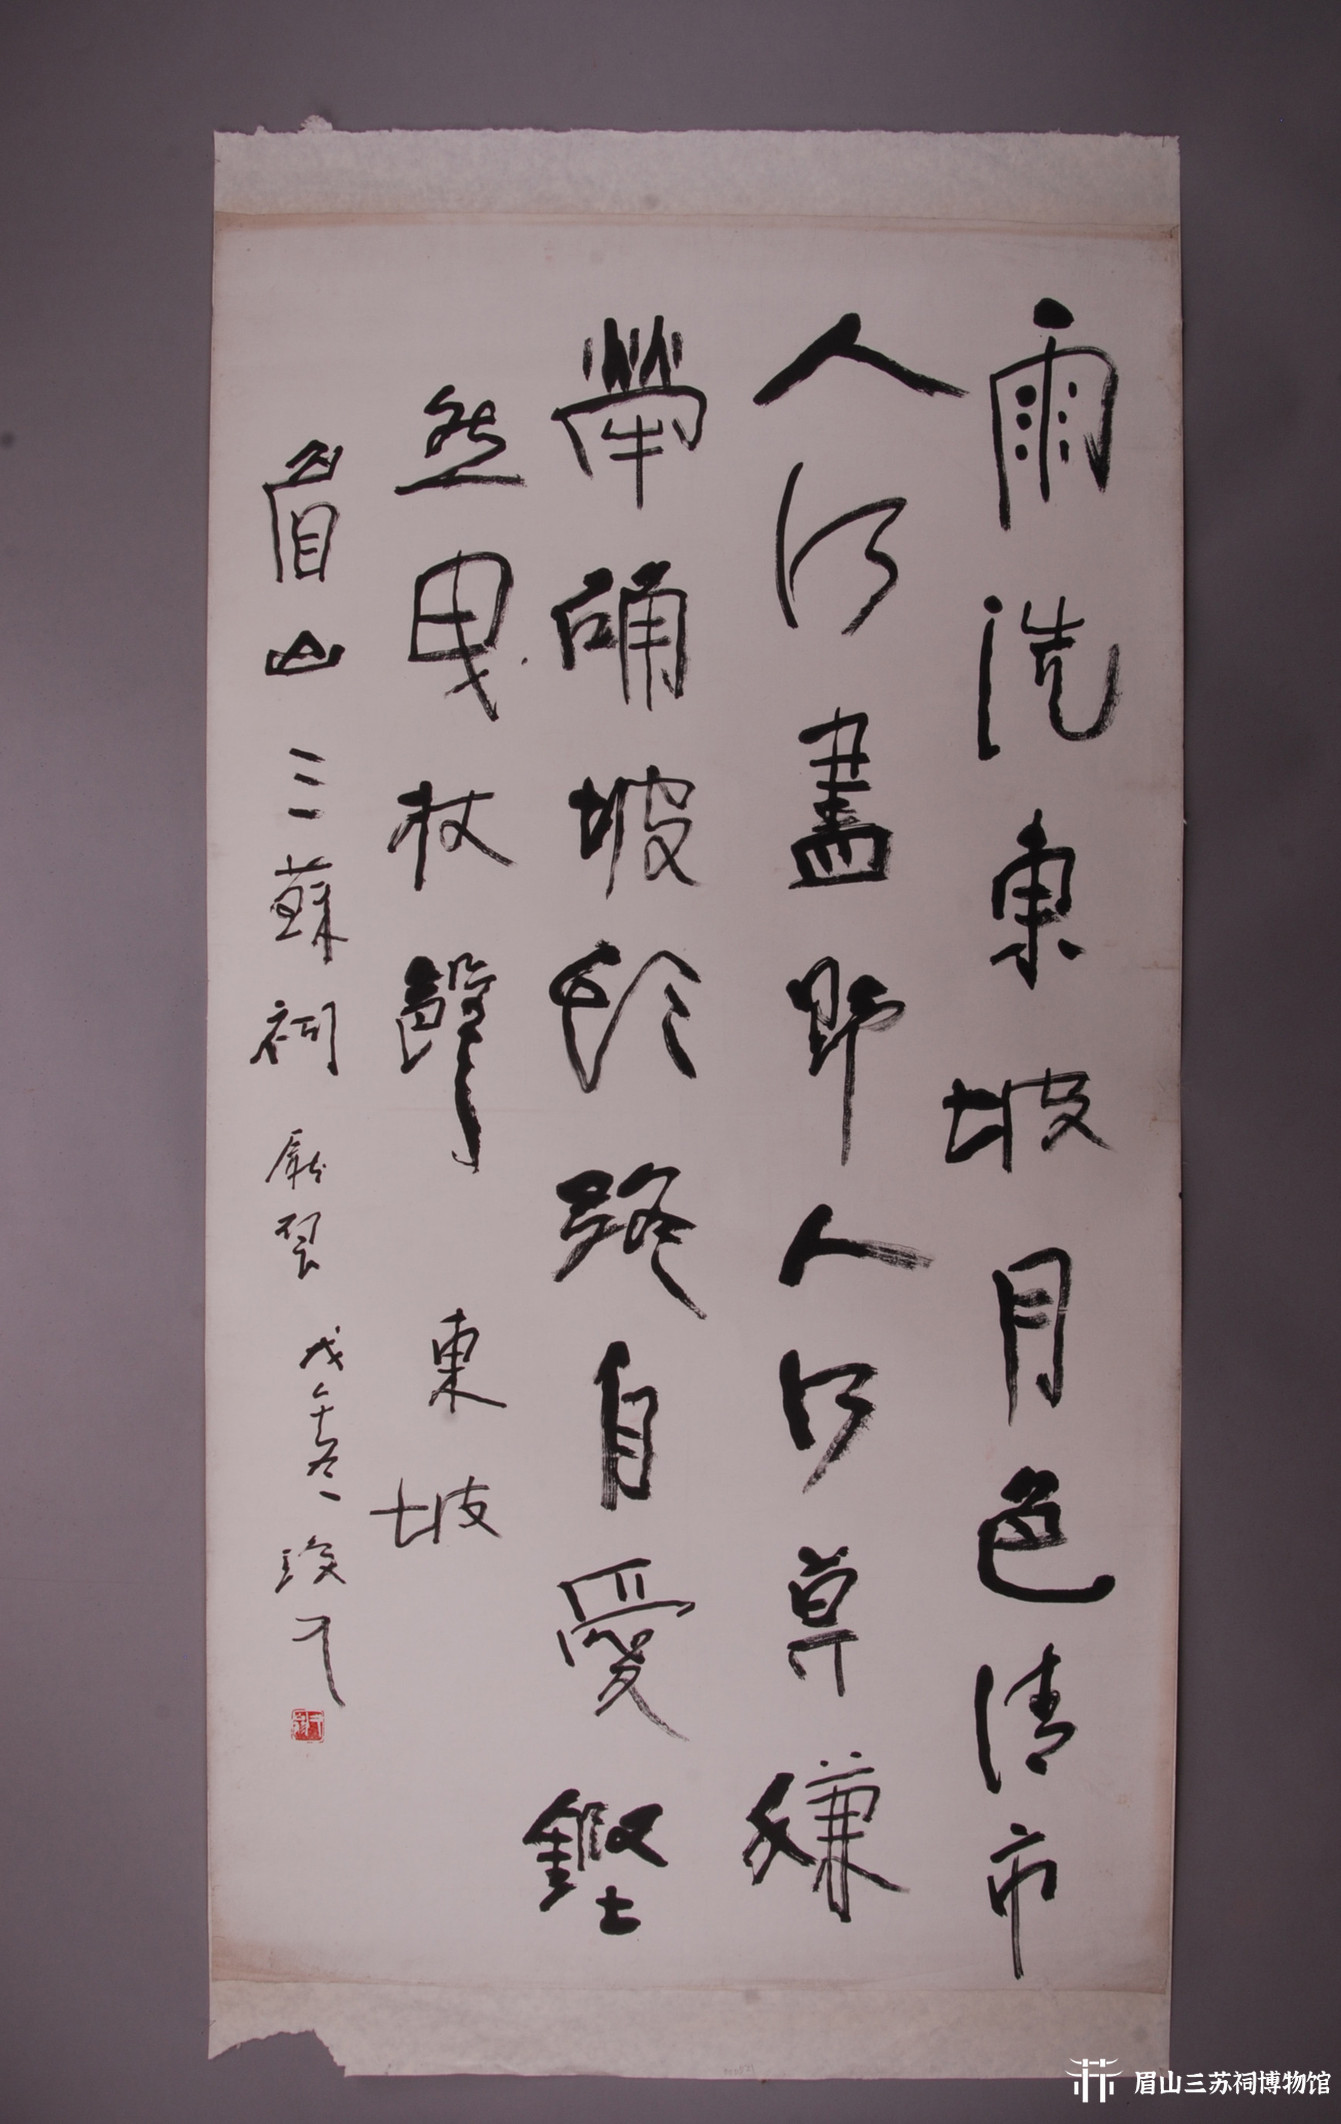 雨洗東坡月色清市
人行盡野人行莫嫌
犖确坡頭路自愛鏗
然曳杖聲 東坡
眉山三蘇祠 戊午冬
眉山三苏祠博物馆